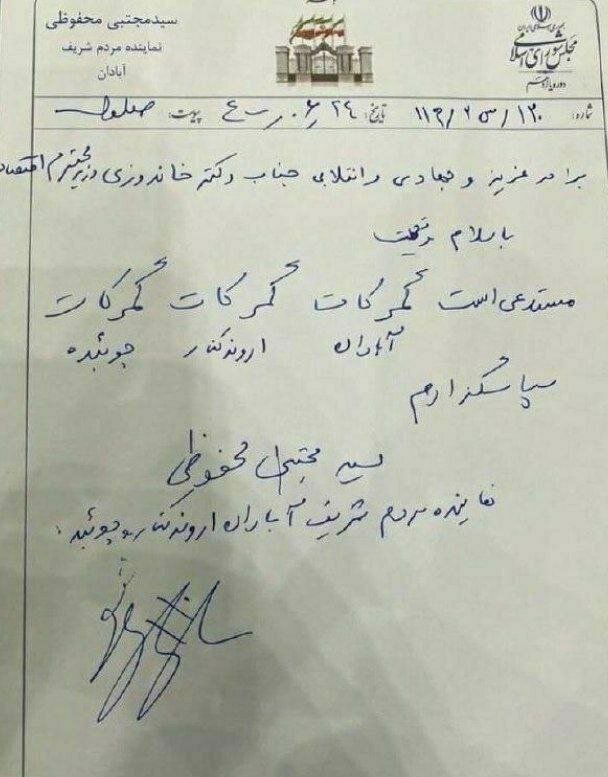 جمهوری اسلامی ایران
مجلس شورای اسلامی
دوره یازدهم
سیدمجتبی محفوظی
نماینده مردم شریف
آبادان
شماره: ۱۳۰/س۲/۱۱۹ تاریخ: ۲۴/۰۶/ پیوست:
برادر عزیز و جهادی و انقلابی جناب دکتر خاندوزی وزیر محترم اقتصاد
باسلام و تحیت
مستدعی است گمرکات گمرکات گمرکات
آبادان اروندکنار چوئبده
سپاسگذارم
سید مجتبی محفوظی
نماینده مردم شریف آبادان اروندکنار و چوئبده.